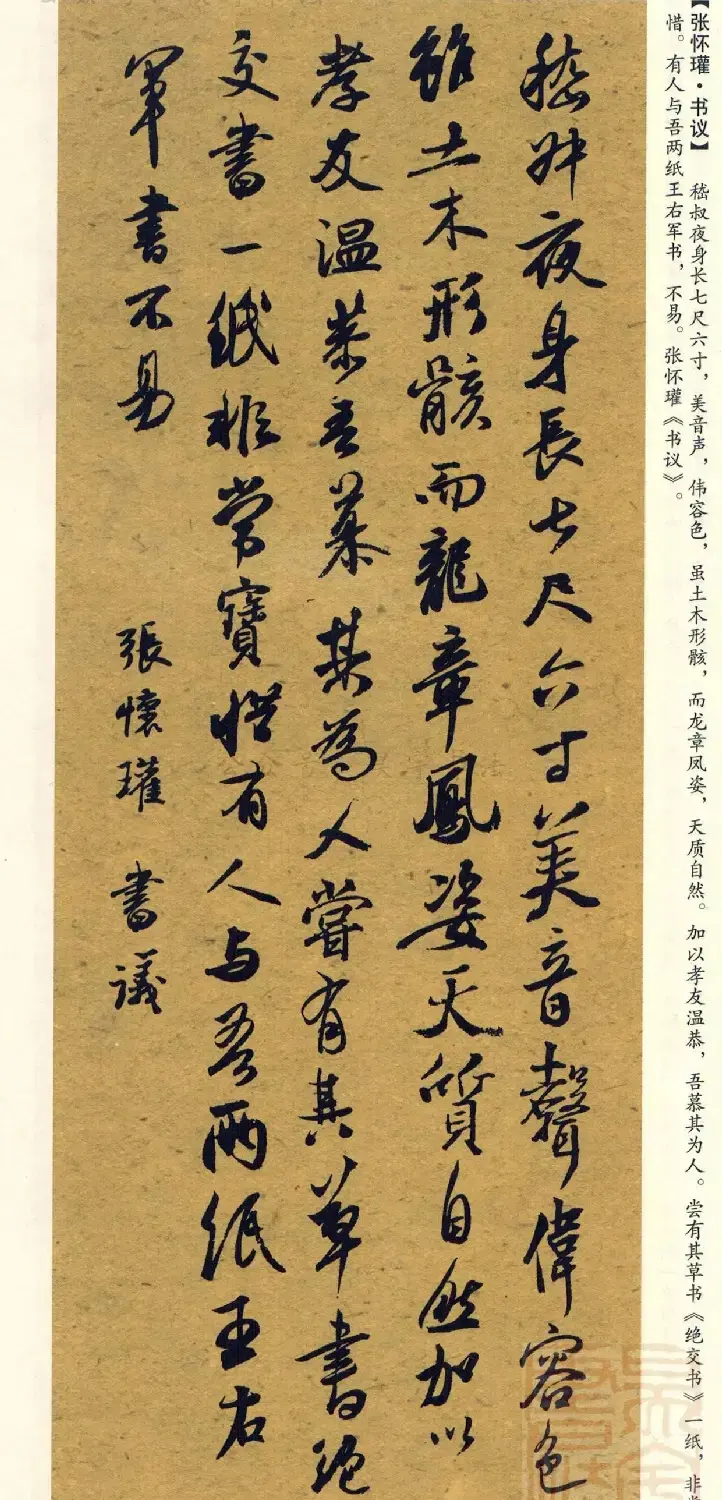 【张怀瓘·书议】 嵇叔夜身长七尺六寸，美音声，伟容色，虽土木形骸，而龙章凤姿，天质自然。加以孝友温恭，吾慕其为人。尝有其草书《绝交书》一纸，非常
惜。有人与吾两纸王右军书，不易。张怀瓘《书议》。
嵇叔夜身長七尺六寸美音聲偉容色
雖土木形骸而龍章鳳姿天質自然加以
孝友温恭吾慕其為人嘗有其草書絶
交書一紙非常寶惜有人与吾兩紙王右
軍書不易
張懷瓘 書議